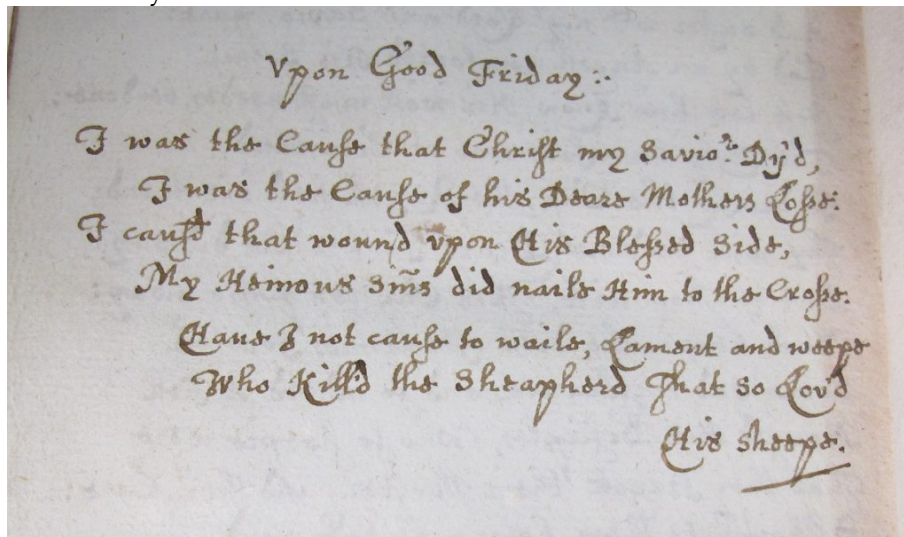 Vpon Good Friday:.
I was the Cause that Christ my Savior. Dy'd,
I was the Cause of his Deare Mothers Losse:
I caus'd that wound vpon His Blessed Side,
My Heinous Sins did naile Him to the Crosse.
Haue I not cause to waile, Lament and weepe
Who Kill'd the Sheapherd That so Lov'd
His sheepe.